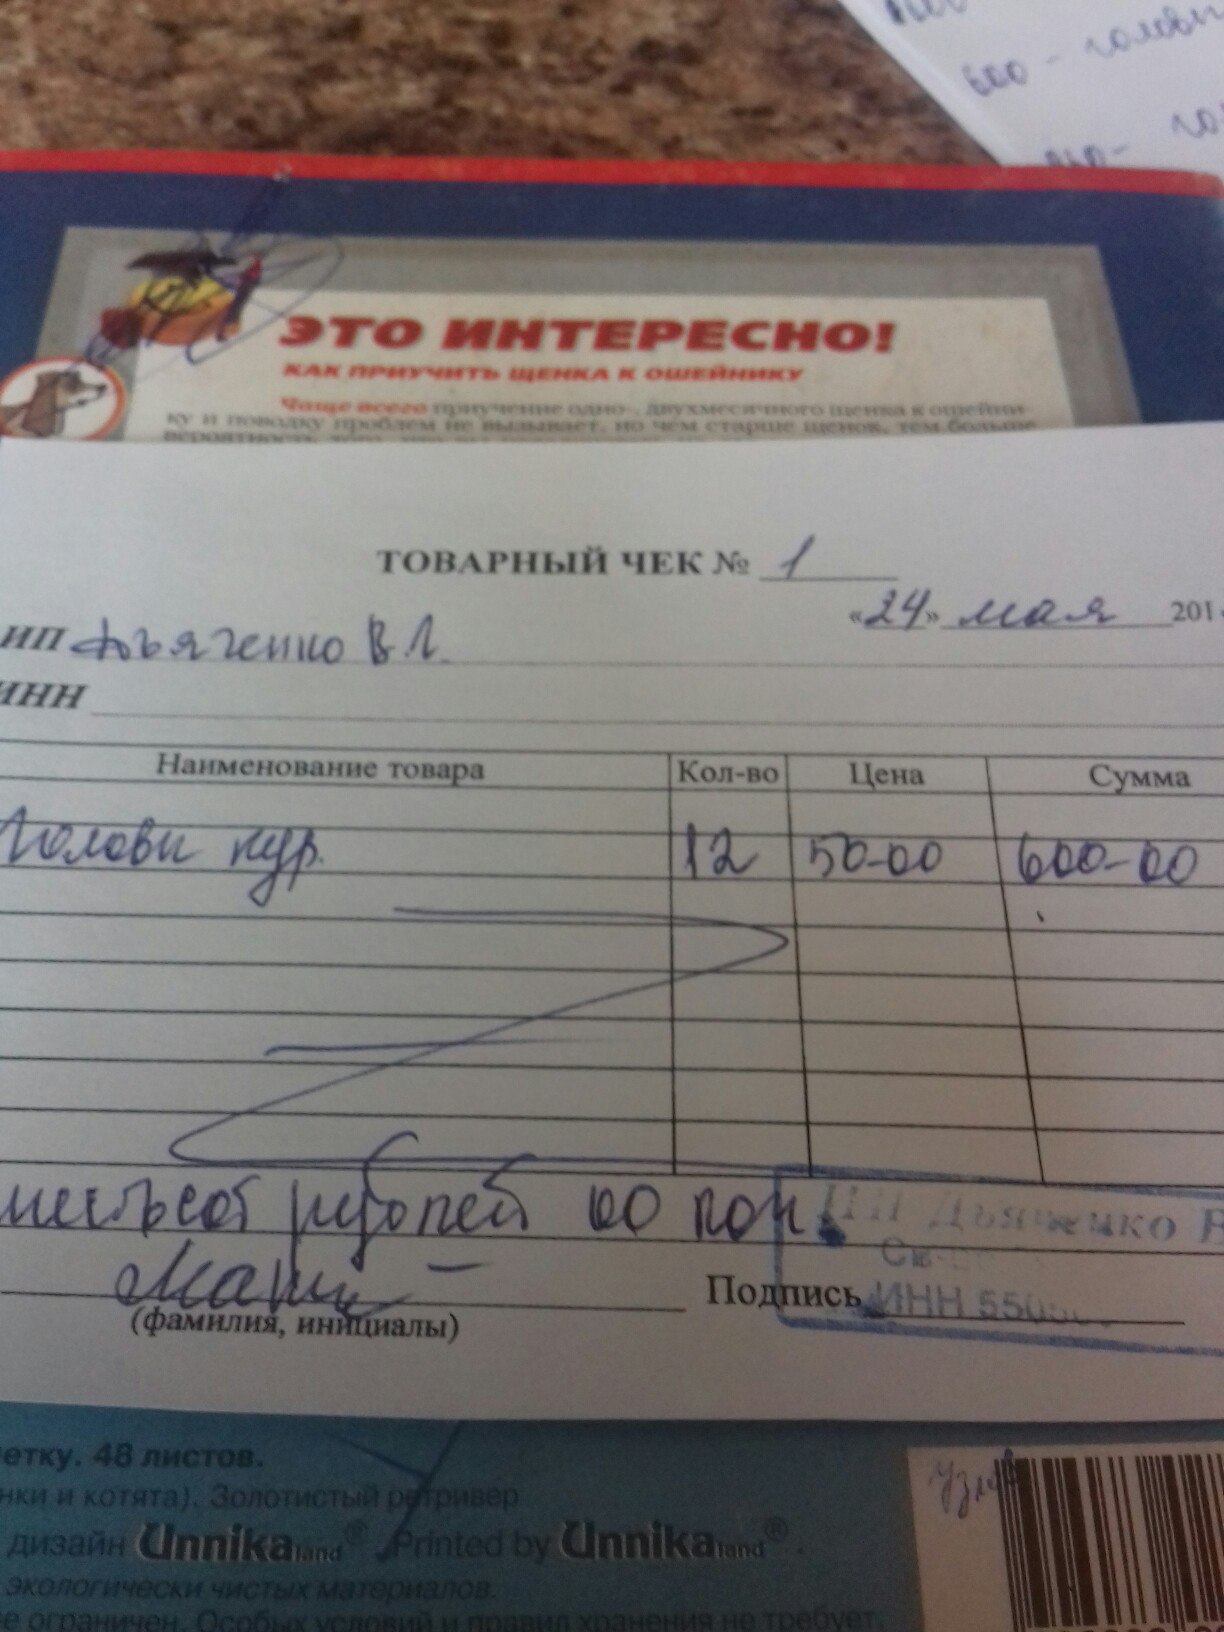 600 - головы
ЭТО ИНТЕРЕСНО!
КАК ПРИУЧИТЬ ЩЕНКА К ОШЕЙНИКУ
Чаще всего приучение одно-, двухмесячного щенка к ошейни-
ку и поводку проблем не вызывает, но чем старше щенок, тем больше
ТОВАРНЫЙ ЧЕК № 1
«24» мая 201
ИП Дьяченко В.Л.
ИНН
Наименование товара Кол-во Цена Сумма
Головы кур. 12 50-00 600-00
шестьсот рублей 00 коп
ИП Дьяченко В
(фамилия, инициалы) Подпись
ИНН 550
етку. 48 листов.
нки и котята). Золотистый ретривер
дизайн Unnikaland® Printed by Unnikaland®.
экологически чистых материалов.
е ограничен. Особых условий и правил хранения не требует.